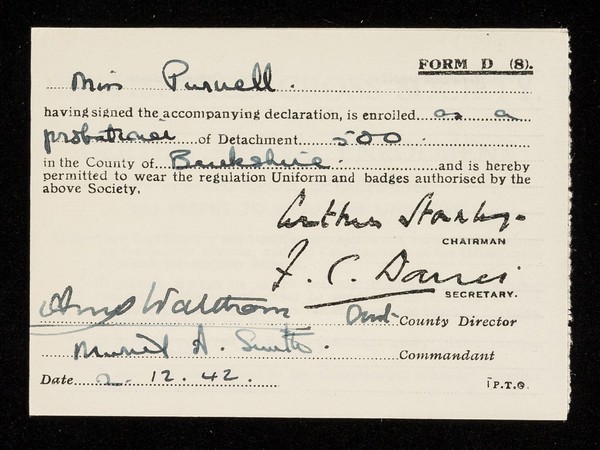 FORM D (8).
Miss Purnell.
having signed the accompanying declaration, is enrolled as a
probationer of Detachment 500.
in the County of Berkshire. and is hereby
permitted to wear the regulation Uniform and badges authorised by the
above Society.
Arthur Stanley
CHAIRMAN
F. C. Davies
SECRETARY.
Waldron County Director
Muriel A. Smith. Commandant
Date 2. 12. 42. P.T.O.